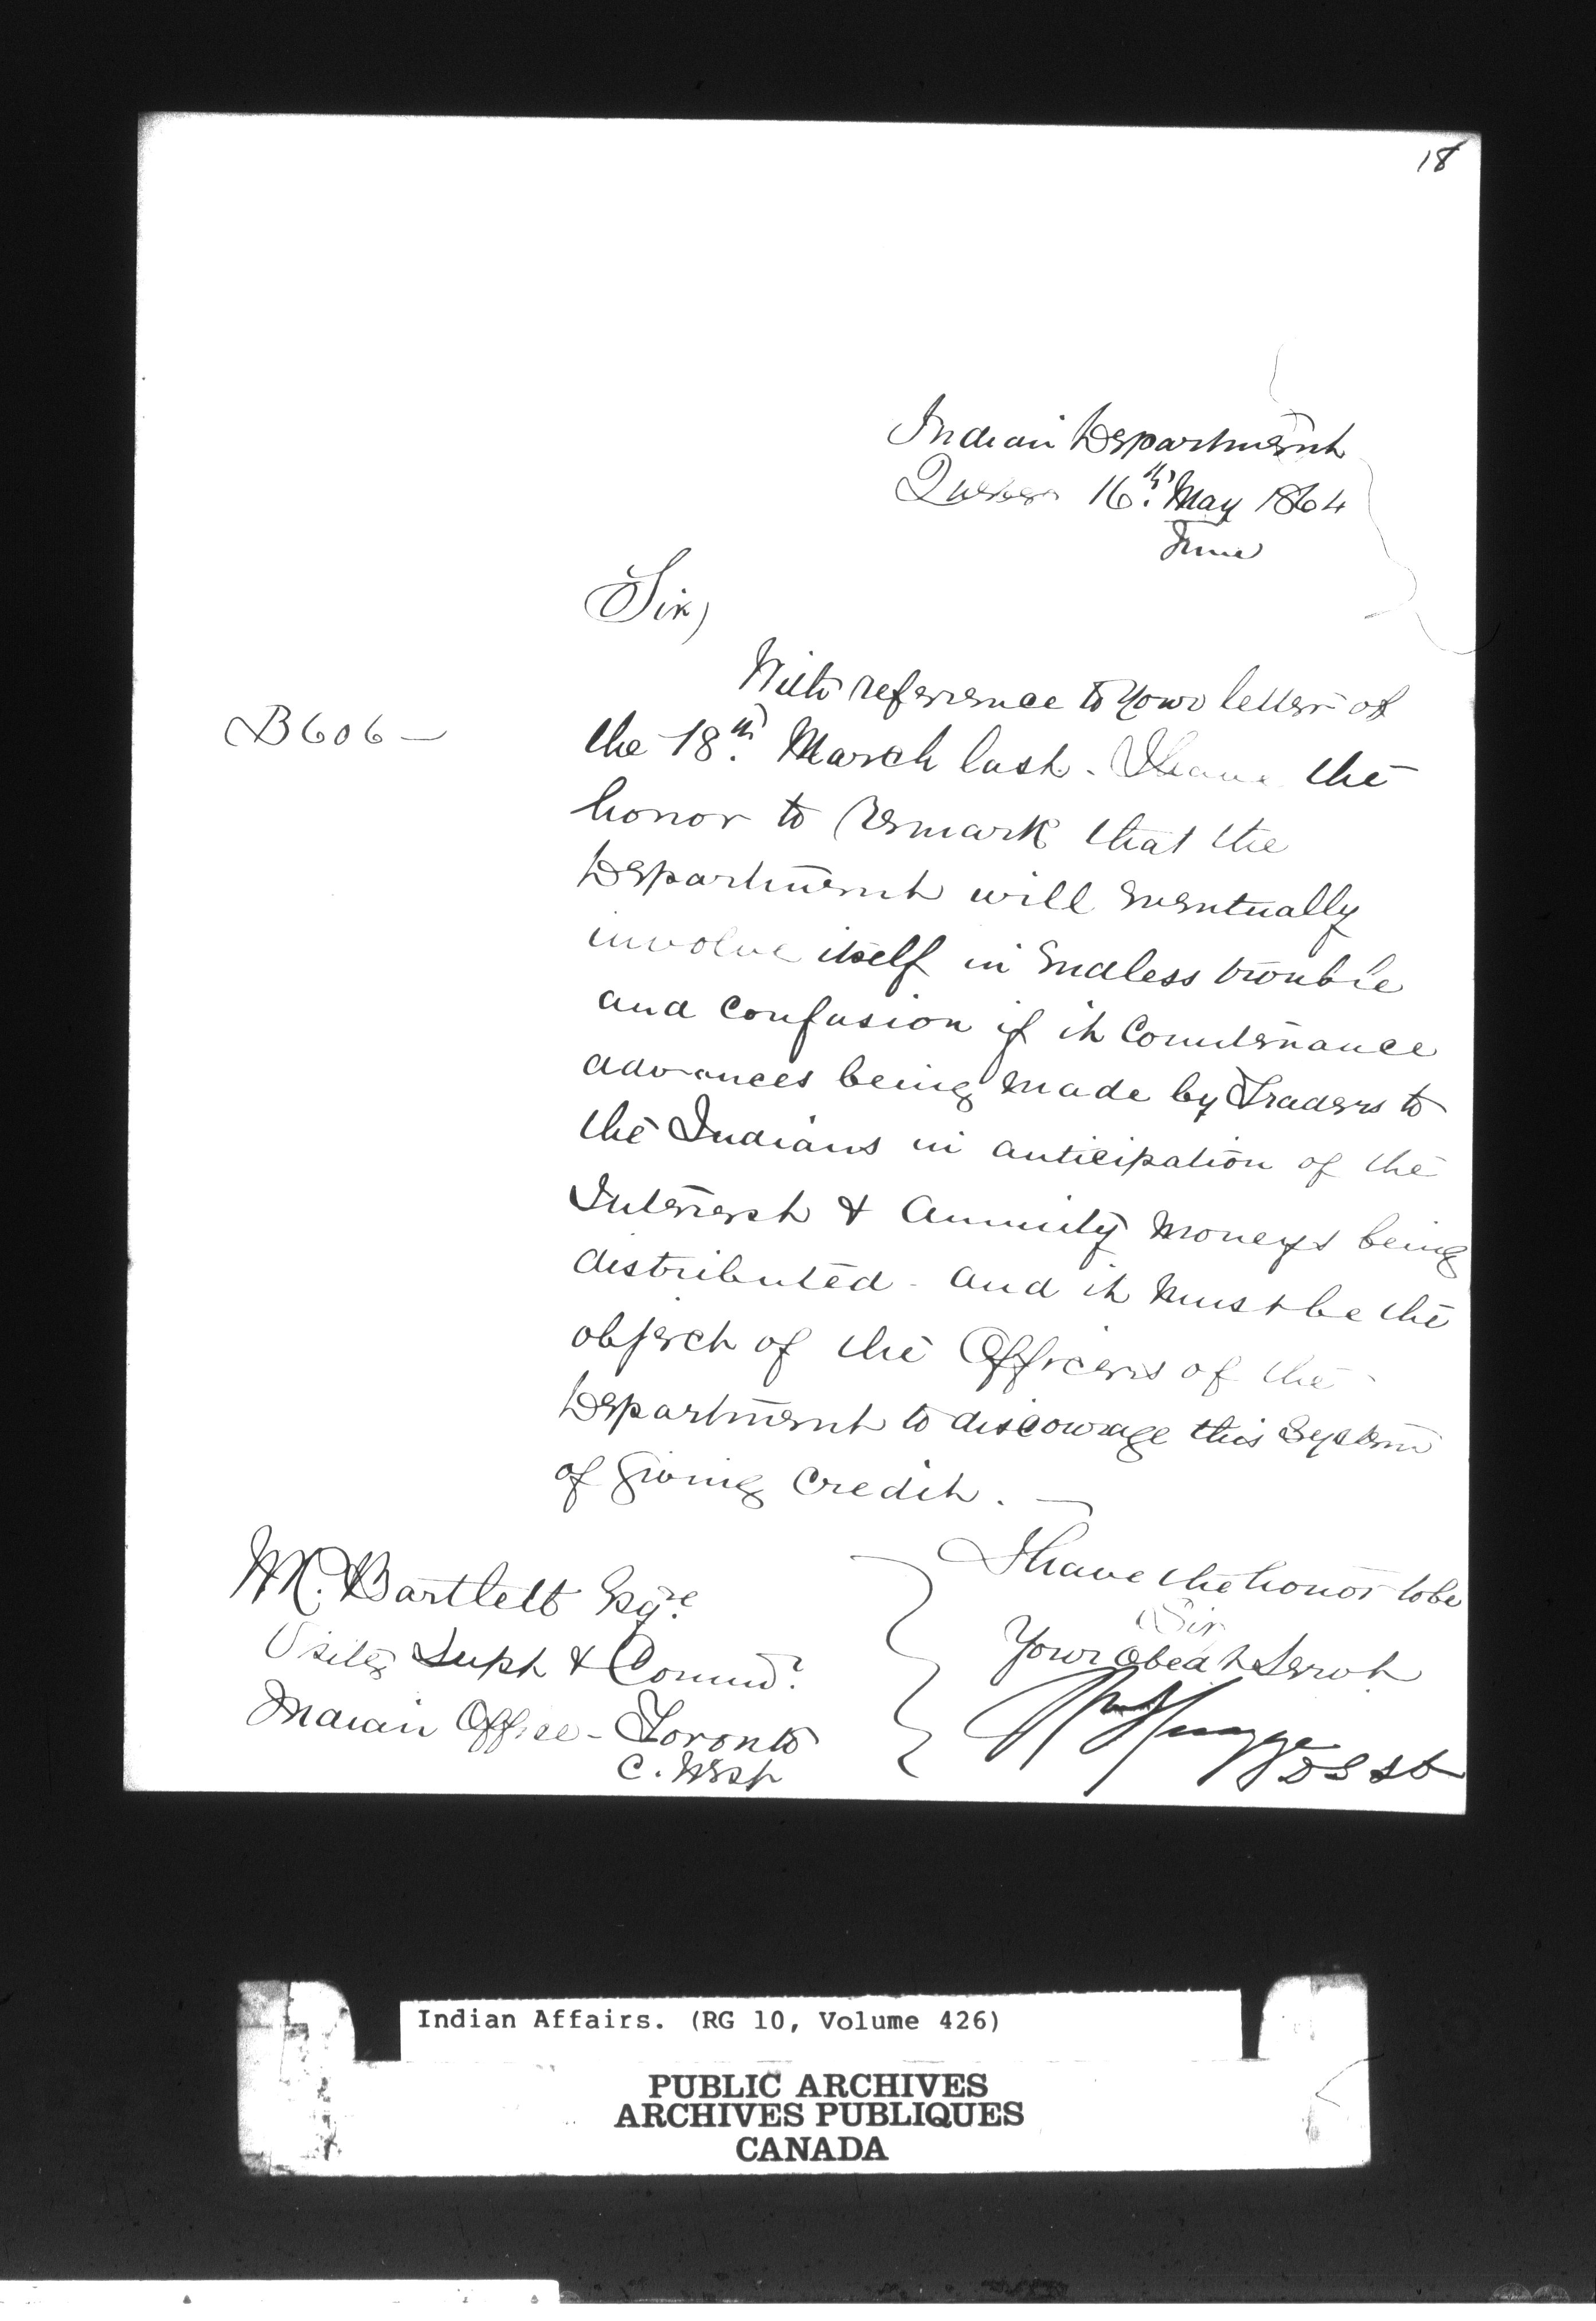 18
Indian Department
Quebec 16th. May 1864
June
Sir,
With reference to your letter of
B606 —
the 18th. March last. I have the
honor to remark that the
Department will eventually
involve itself in Endless trouble
and confusion if it Countenance
advances being made by Traders to
the Indians in anticipation of the
Interest & Annuity Moneys being
distributed - and it must be the
object of the Officers of the
Department to discourage this System
of Giving Credit. —
I have the honor to be
Sir
Your Obedt Servt
DSSt
W. Bartlett Esqre.
Visitg Supt & Commr.
Indian Office - Toronto
C. West
Indian Affairs. (RG 10, Volume 426)
PUBLIC ARCHIVES
ARCHIVES PUBLIQUES
CANADA